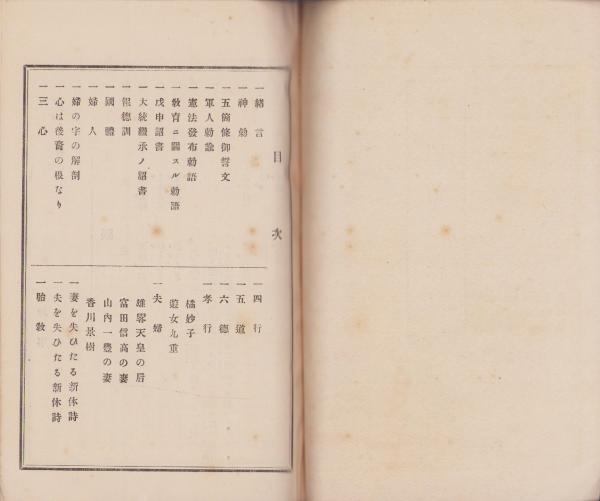 目次
一緒言
一神勅
一五箇條御誓文
一軍人勅諭
一憲法發布勅語
一敎育ニ關スル勅語
一戊申詔書
一大統繼承ノ詔書
一報德訓
一國體
一婦人
一婦の字の解剖
一心は後裔の根なり
一三心
一四行
一五道
一六德
一孝行
橘妙子
遊女九重
一夫婦
雄畧天皇の后
富田信高の妻
山內一豐の妻
香川景樹
一妻を失ひたる新体詩
一夫を失ひたる新体詩
一胎敎